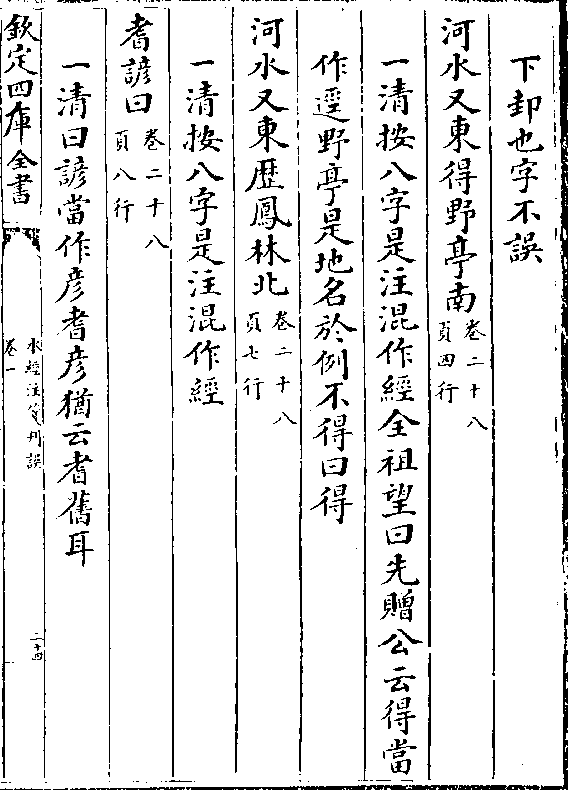 下卸也字不誤
河水又東得野亭南卷二十八頁四行
一清按八字是注混作經全祖望曰先贈公云得當
作逕野亭是地名於例不得曰得
河水又東歷鳳林北卷二十八頁七行
一清按八字是注混作經
耆諺曰卷二十八頁八行
一清曰諺當作彦耆彦猶云耆舊耳
欽定四庫全書
水經注箋刋誤
卷一
二十四